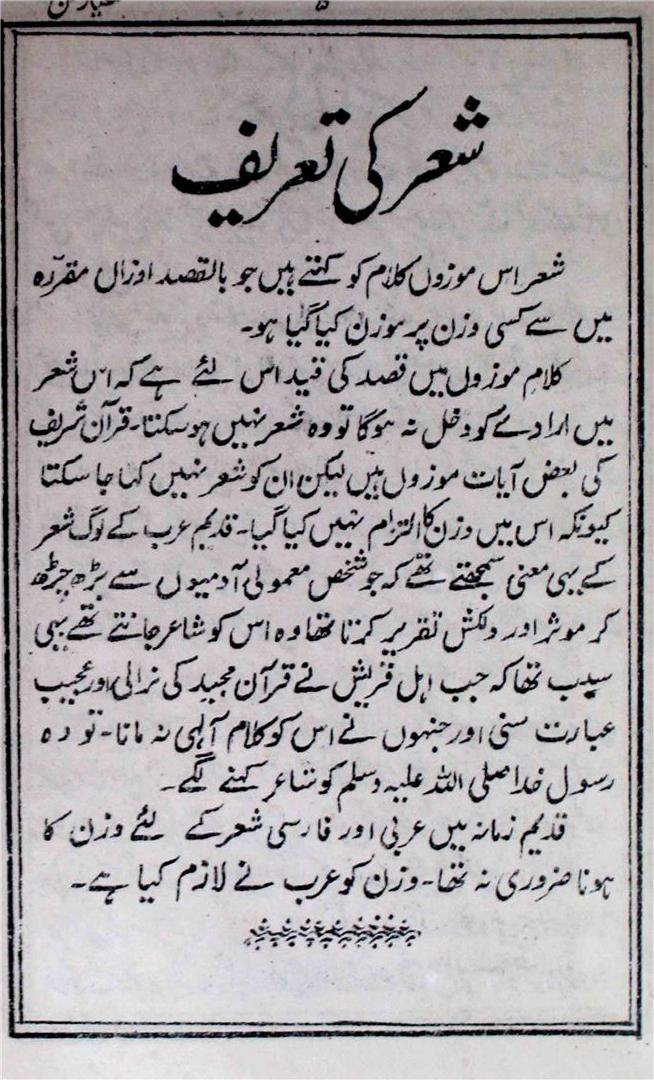 ۵
شعر کی تعریف
شعر اس موزوں کلام کو کہتے ہیں جو بالقصد اوزان مقررہ
میں سے کسی وزن پر موزن کیا گیا ہو۔
کلام موزوں میں قصد کی قید اس لئے ہے کہ اس شعر
میں ارادے کو دخل نہ ہوگا تو وہ شعر نہیں ہو سکتا۔ قرآن شریف
کی بعض آیات موزوں ہیں لیکن ان کو شعر نہیں کہا جا سکتا
کیونکہ اس میں وزن کا التزام نہیں کیا گیا۔ قدیم عرب کے لوگ شعر
کے یہی معنی سمجھتے تھے کہ جو شخص معمولی آدمیوں سے بڑھ چڑھ
کر موثر اور دلکش تقریر کرتا تھا وہ اس کو شاعر جانتے تھے یہی
سبب تھا کہ جب اہل قریش نے قرآن مجید کی نرالی اور عجیب
عبارت سنی اور جنہوں نے اس کو کلام آلہی نہ مانا۔ تو وہ
رسول خدا صلی اللہ علیہ وسلم کو شاعر کہنے لگے۔
قدیم زمانہ میں عربی اور فارسی شعر کے لئے وزن کا
ہونا ضروری نہ تھا۔ وزن کو عرب نے لازم کیا ہے۔